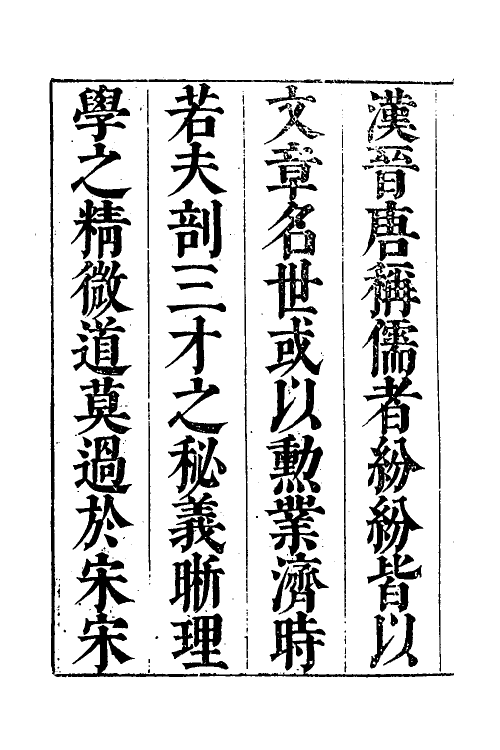 漢晉唐稱儒者紛紛皆以
文章名世或以勲業濟時
若夫剖三才之秘義晰理
學之精微道莫過於宋宋